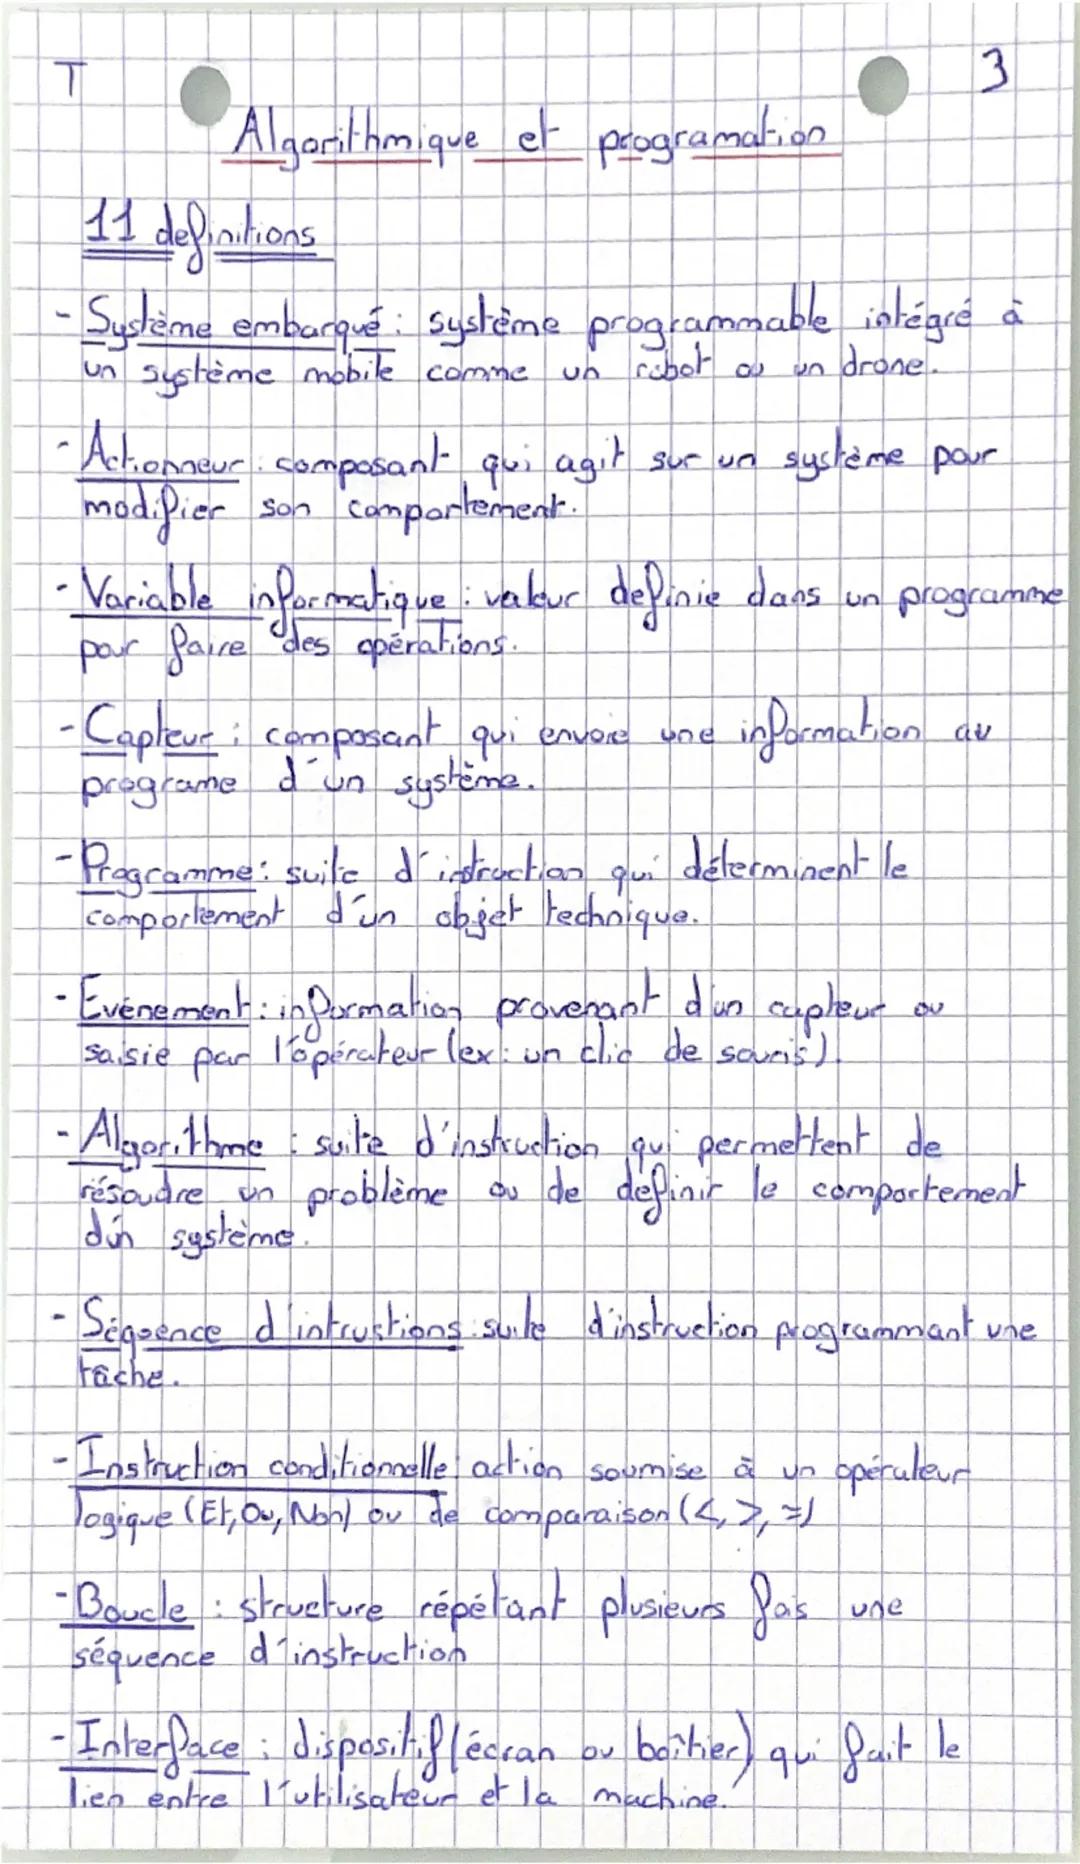 T
3
Algorithmique et programation
11 definitions
- Système embarqué : système programmable intégré à
un système mobile comme un robot ou un drone.
- Actionneur : composant qui agit sur un système pour
modifier son comportement.
- Variable informatique : valeur definie dans un programme
pour faire des opérations.
- Capteur : composant qui envoie une information au
programe d'un système.
- Programme : suite d'istruction qui déterminent le
comportement d'un objet technique.
- Evénement : information provenant d'un capteur ou
saisie par l'opérateur (ex : un clic de souris).
- Algorithme : suite d'instruction qui permettent de
résoudre un problème ou de definir le comportement
d'un système.
- Séquence d'intructions : suite d'instruction programmant une
tâche.
- Instruction conditionnelle : action soumise à un opérateur
logique (Et, Ou, Non) ou de comparaison (<, >, =)
- Boucle : structure répétant plusieurs fois une
séquence d'instruction
- Interface : dispositif (écran ou boîtier) qui fait le
lien entre l'utilisateur et la machine.